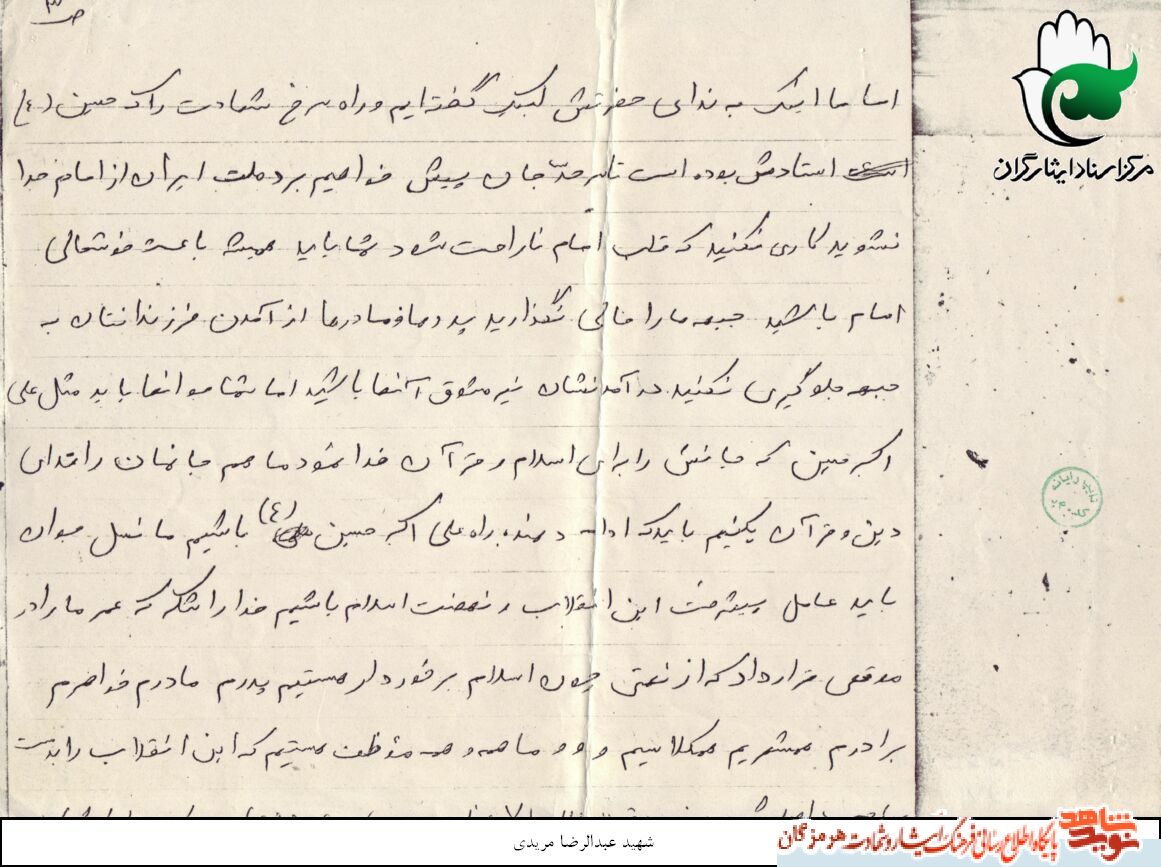 ص ۳
اما ما اینک به ندای حضرتش لبیک گفته‌ایم و راه سرخ شهادت را که حسین (ع)
استادش بوده است تا سر حدّ جان پیش خواهیم برد ملت ایران از امام جدا
نشوید کاری نکنید که قلب امام ناراحت شود شما باید همیشه باعث خوشحالی
امام باشید جبهه ما را خالی نگذارید پدرها و مادرها از آمدن فرزندانتان به
جبهه جلوگیری نکنید در آمدنشان نیز مشوق آنها باشید اما شما جوانها باید مثل علی
اکبر حسین که جانش را برای اسلام و قرآن فدا نمود ما هم جانمان را فدای
دین و قرآن بکنیم باید که ادامه دهنده راه علی اکبر حسین (ع) باشیم ما نسل جوان
باید عامل پیشرفت این انقلاب و نهضت اسلام باشیم خدا را شکر که عمر ما را در
موقعی قرار داد که از نعمتی چون اسلام برخوردار هستیم پدرم مادرم خواهرم
برادرم همشهریم همکلاسیم و و و ما همه و همه مؤظف هستیم که این انقلاب را بدست
مرکز اسناد ایثارگران
تایپ رایانه
شهید عبدالرضا مریدی
نوید شاهد
پایگاه اطلاع رسانی فرهنگ ایثار و شهادت هرمزگان